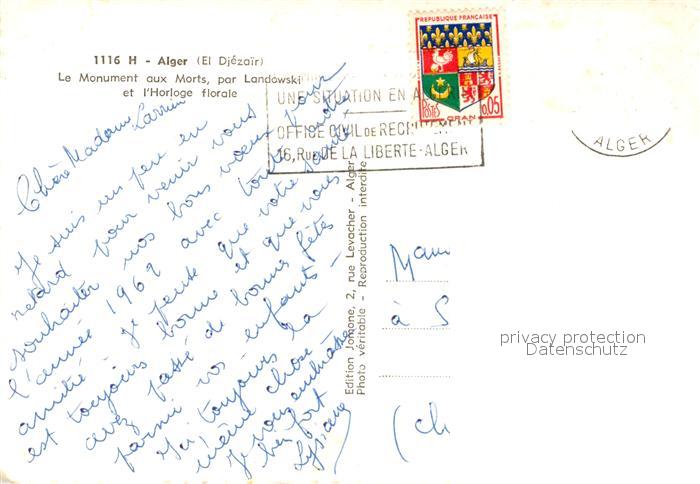 1116 H - Alger (El Djézaïr)
Le Monument aux Morts, par Landowski
et l'Horloge florale
REPUBLIQUE FRANÇAISE
POSTES
ORAN
0,05
UNE SITUATION EN
OFFICE CIVIL DE
16, RUE DE LA LIBERTE-ALGER
ALGER
Chère Madame
Je suis un peu en
retard pour venir vous
souhaiter nos bons voeux pour
l'année 1962 avec toute
amitié - je pense que votre santé
est toujours bonne et que vous
avez passé de bonnes fêtes
parmi vos enfants -
Ici toujours la
même chose
Je vous embrasse
bien fort
Edition Jomone, 2, rue Levacher - Alger
Photo véritable - Reproduction interdite
à S
privacy protection
Datenschutz